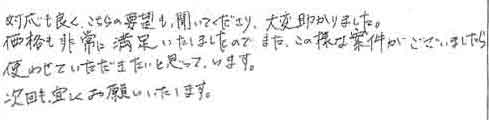 対応も良く、こちらの要望も聞いてくださり、大変助かりました。
価格も非常に満足いたしましたので また、この様な案件がございましたら
使わせていただきたいと思っています。
次回も宜しくお願いいたします。